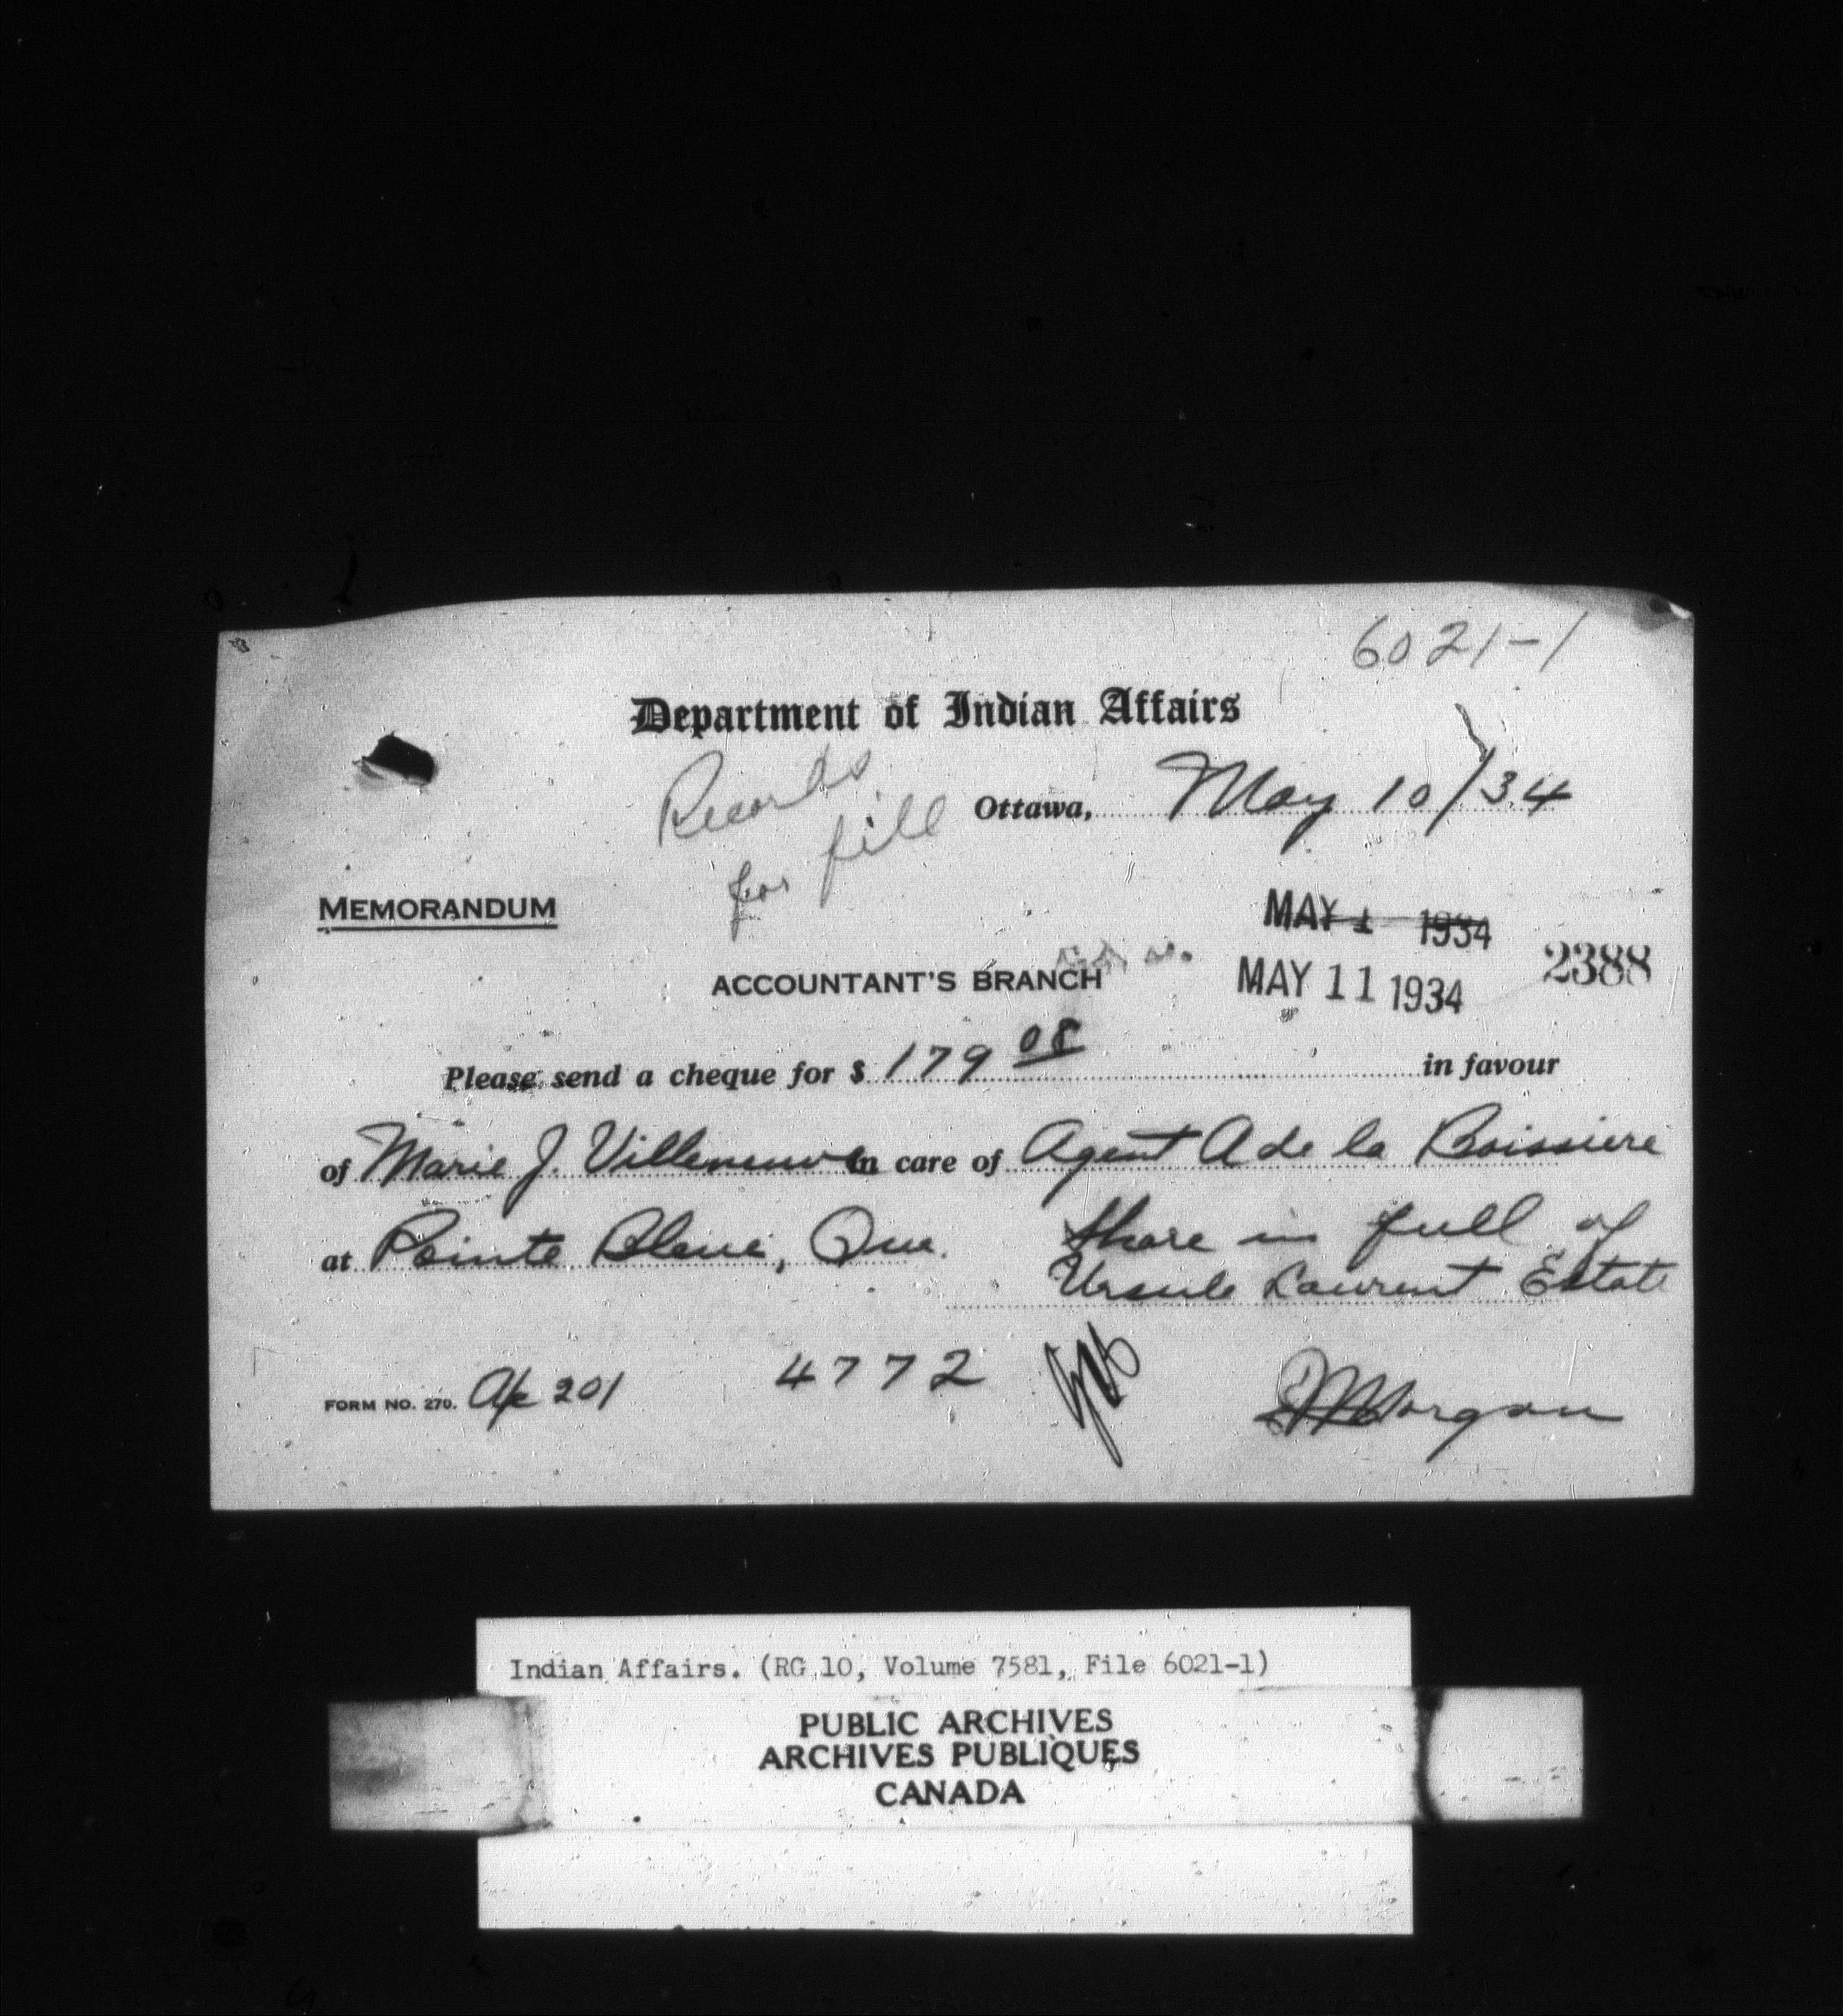 6021-1
Department of Indian Affairs
Records
for fill
Ottawa, May 10/34
MEMORANDUM
MAY 1 1934
ACCOUNTANT'S BRANCH
MAY 11 1934
2388
Please send a cheque for $ 179 08 in favour
of Marie J. Villeneuve In care of Agent A de la Boissiere
at Pointe Bleue, Que. Share in full of
Ursule Laurent Estate
FORM NO. 270. A/c 201 4772 Morgan
Indian Affairs. (RG 10, Volume 7581, File 6021-1)
PUBLIC ARCHIVES
ARCHIVES PUBLIQUES
CANADA